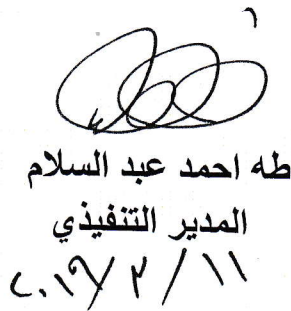 طه احمد عبد السلام
المدير التنفيذي
٢٠١٩/٣/١١